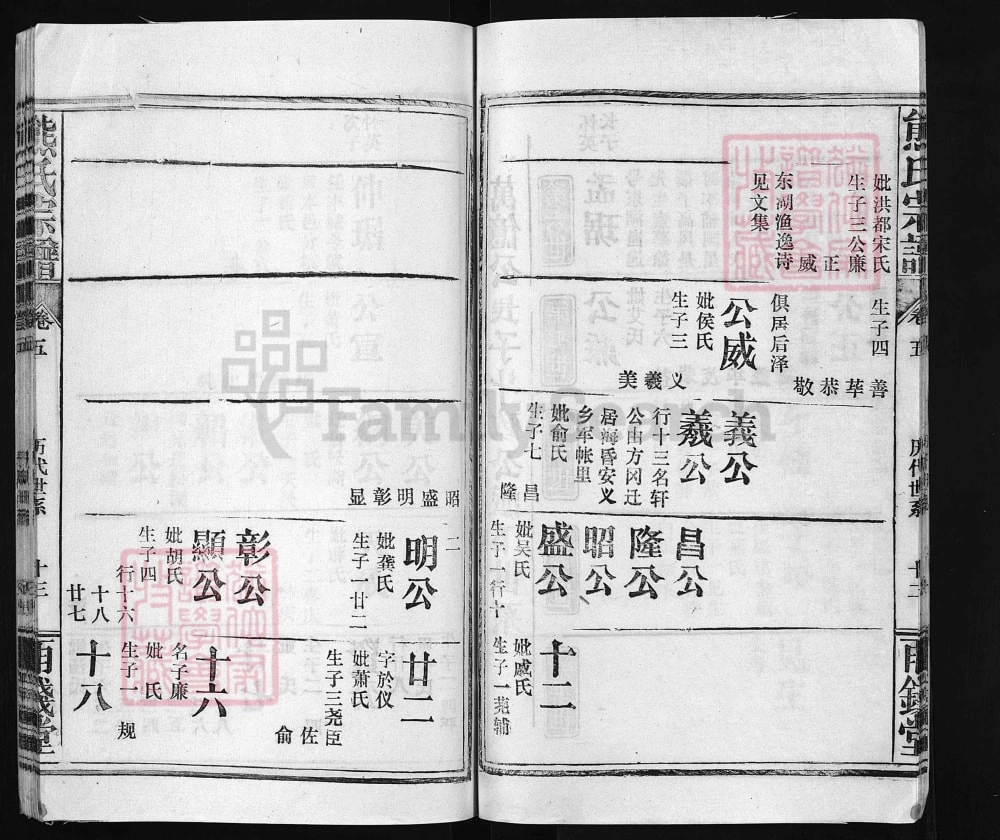 熊氏宗譜
卷五
历代世系
十三
妣洪都宋氏
生子三公廉
正
威
东湖渔逸诗
见文集
生子四
善
莘
恭
敬
俱居后泽
公威
妣侯氏
生子三
义
羲
美
義公
羲公
行十三名轩
公由方冈迁
居海昏安义
乡军帐里
妣俞氏
生子七
昌
隆
昌公
隆公
昭公
盛公
妣吴氏
生子一行十
十二
妣戚氏
生子一莞辅
昭
盛
明
彰
显
二
明公
妣龚氏
生子一廿二
彰公
顯公
妣胡氏
生子四
行十六
十八
廿七
廿二
字於仪
妣萧氏
生子三尧臣
佐
俞
十六
名子廉
妣 氏
生子一
规
十八
熊氏宗譜
卷五
历代世系
十三
FamilySearch